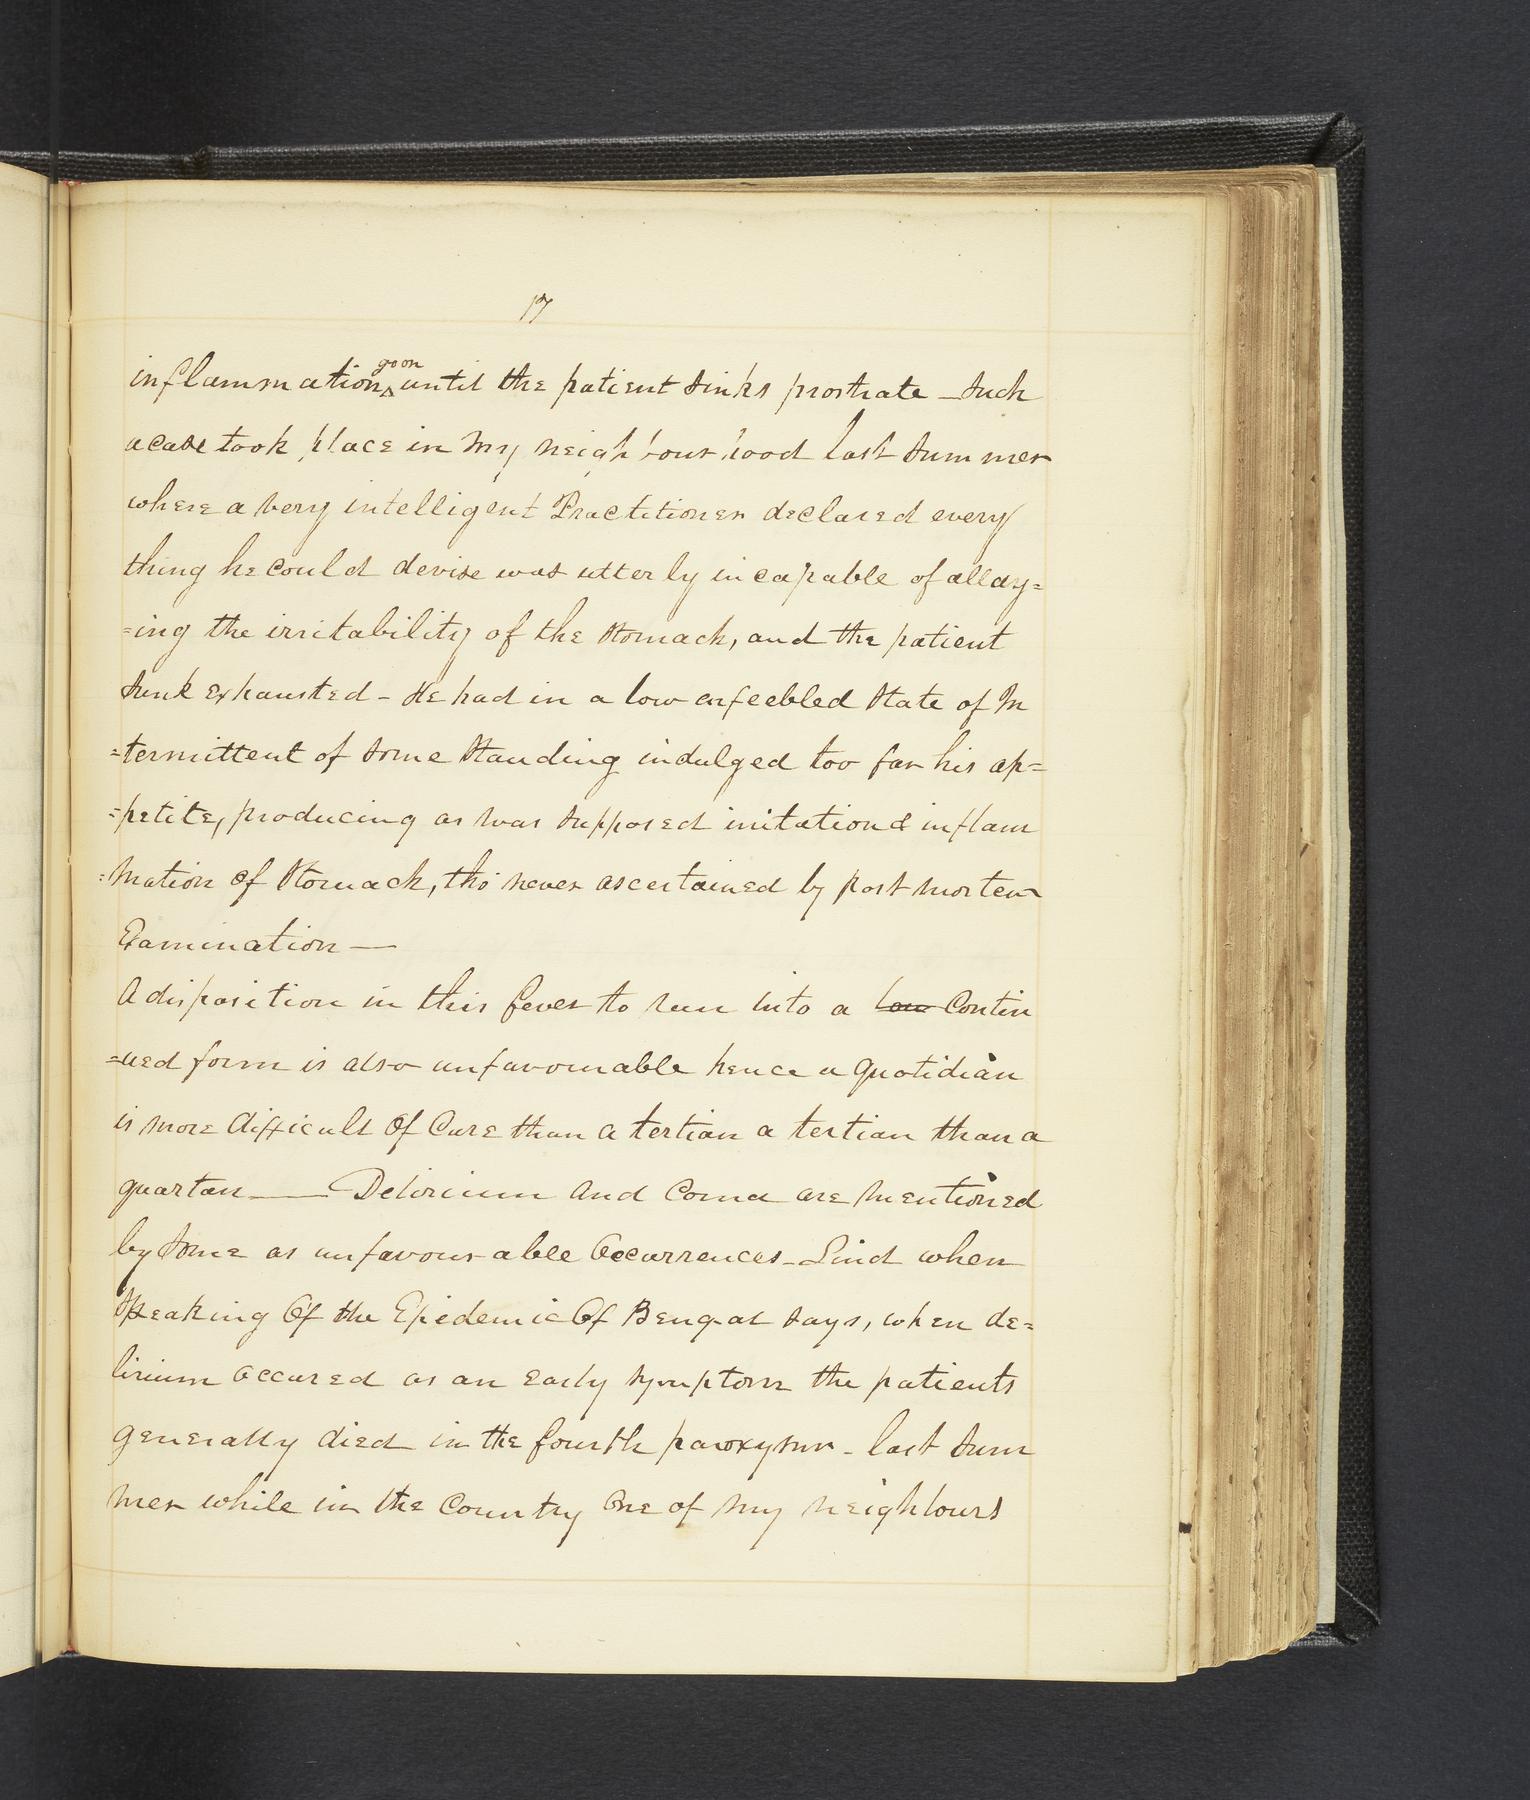 17
inflammation goon until the patient sinks prostrate – Such
a case took place in my neighbourhood last Summer
where a very intelligent Practitioner declared every
thing he could devise was utterly incapable of allay=
=ing the irritability of the Stomach, and the patient
sunk exhausted – He had in a low enfeebled State of In
=termittent of some Standing indulged too far his ap=
=petite, producing as was supposed irritation & inflam
=mation of Stomack, tho' never ascertained by post mortem
Examination —
A disposition in this fever to run into a low Contin
=ued form is also unfavourable hence a quotidian
is more difficult Of Cure than a tertian a tertian than a
quartan —— Delirium and Coma are mentioned
by some as unfavourable Occurrences – Lind when
Speaking Of the Epidemic Of Bengal says, when de=
lirium occured as an early symptom the patients
generally died in the fourth paroxysm – last Sum
mer while in the Country One of my neighbours